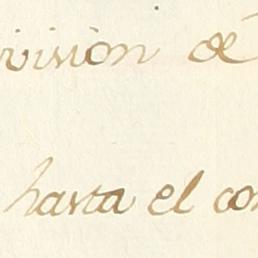 vision de
hasta el con